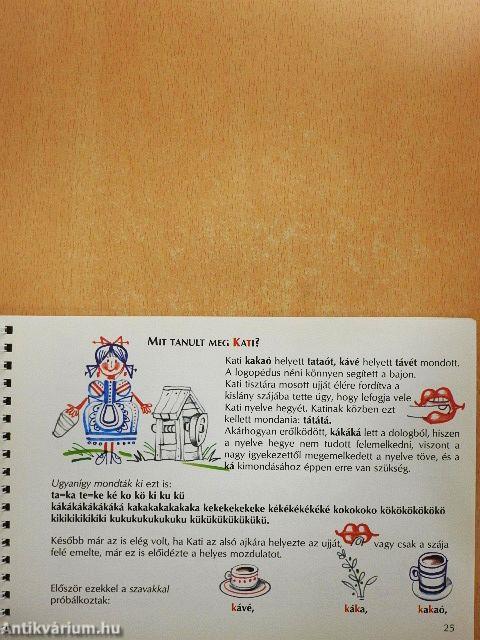 MIT TANULT MEG KATI?
Kati kakaó helyett tataót, kávé helyett távét mondott.
A logopédus néni könnyen segített a bajon.
Kati tisztára mosott ujját élére fordítva a
kislány szájába tette úgy, hogy lefogja vele
Kati nyelve hegyét. Katinak közben ezt
kellett mondania: tátátá.
Akárhogyan erőlködött, kákáká lett a dologból, hiszen
a nyelve hegye nem tudott felemelkedni, viszont a
nagy igyekezettől megemelkedett a nyelve töve, és a
ká kimondásához éppen erre van szükség.
Ugyanígy mondták ki ezt is:
ta=ka te=ke ké ko kö ki ku kü
kákákákákákáká kakakakakakaka kekekekekeke kékékékékéké kokokoko kökökökökökö
kikikikikikiki kukukukukukuku kükükükükükükü.
Később már az is elég volt, ha Kati az alsó ajkára helyezte az ujját, vagy csak a szája
felé emelte, már ez is előidézte a helyes mozdulatot.
Először ezekkel a szavakkal
próbálkoztak:
kávé, káka, kakaó,
25
Antikvárium.hu